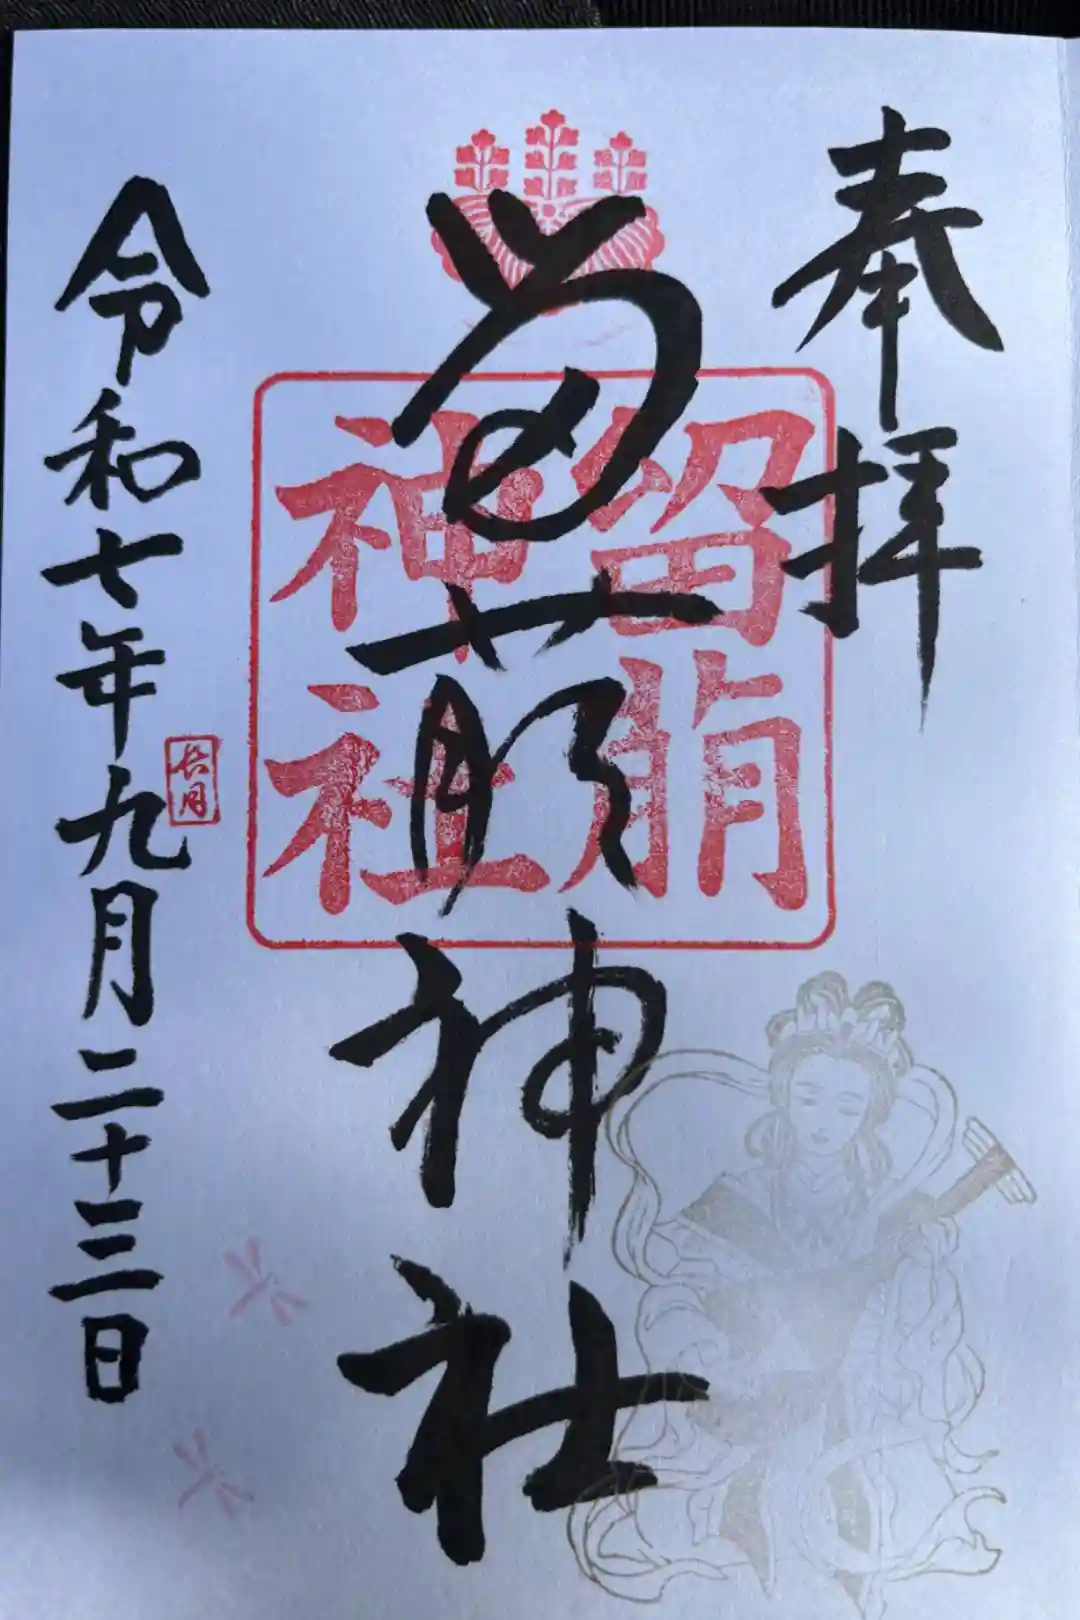 奉拝
留萌神社
令和七年九月二十三日
留萌
神社
長月